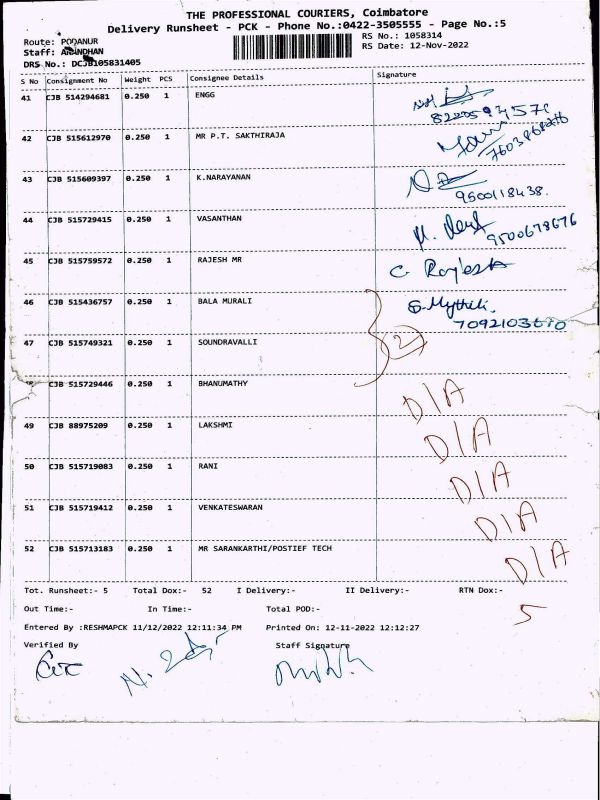 THE PROFESSIONAL COURIERS, Coimbatore
Delivery Runsheet - PCK - Phone No.:0422-3505555 - Page No.:5
Route: PODANUR
RS No.: 1058314
Staff: ARINDHAN
RS Date: 12-Nov-2022
DRS No.: DCJB105831405
S No Consignment No Weight PCS Consignee Details Signature
41 CJB 514294681 0.250 1 ENGG
42 CJB 515612970 0.250 1 MR P.T. SAKTHIRAJA
43 CJB 515609397 0.250 1 K.NARAYANAN
9500118438.
44 CJB 515729415 0.250 1 VASANTHAN
9500678676
45 CJB 515759572 0.250 1 RAJESH MR
C. Rajesh
46 CJB 515436757 0.250 1 BALA MURALI
S. Mythili.
7092103670
47 CJB 515749321 0.250 1 SOUNDRAVALLI
2
48 CJB 515729446 0.250 1 BHANUMATHY
D/A
49 CJB 88975209 0.250 1 LAKSHMI
D/A
50 CJB 515719083 0.250 1 RANI
D/A
51 CJB 515719412 0.250 1 VENKATESWARAN
D/A
52 CJB 515713183 0.250 1 MR SARANKARTHI/POSTIEF TECH
D/A
Tot. Runsheet:- 5 Total Dox:- 52 I Delivery:- II Delivery:- RTN Dox:-
5
Out Time:- In Time:- Total POD:-
Entered By :RESHMAPCK 11/12/2022 12:11:34 PM Printed On:- 12-11-2022 12:12:27
Verified By Staff Signature